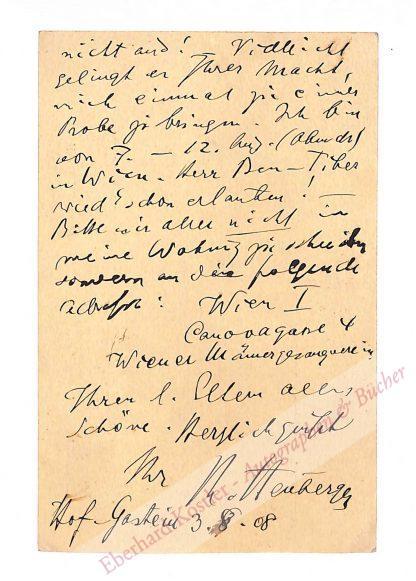 nicht aus! Vielleicht
gelingt es Ihrer Macht,
mich einmal zu einer
Probe zu bringen. Ich bin
von 7. – 12. Aug. (Abends)
in Wien. Herr Ben-Tiber
wird's schon erlauben! –
Bitte mir aber nicht in
meine Wohnung zu schreiben
sondern an die folgende
Adresse: Wien I
Canovagasse 4
Wiener Männergesangverein
Ihren l. Eltern alles
Schöne. Herzlich grüßt
Ihr R. Heuberger
Hof-Gastein 3. 8. 08
Eberhard Köstler - Autographen & Bücher